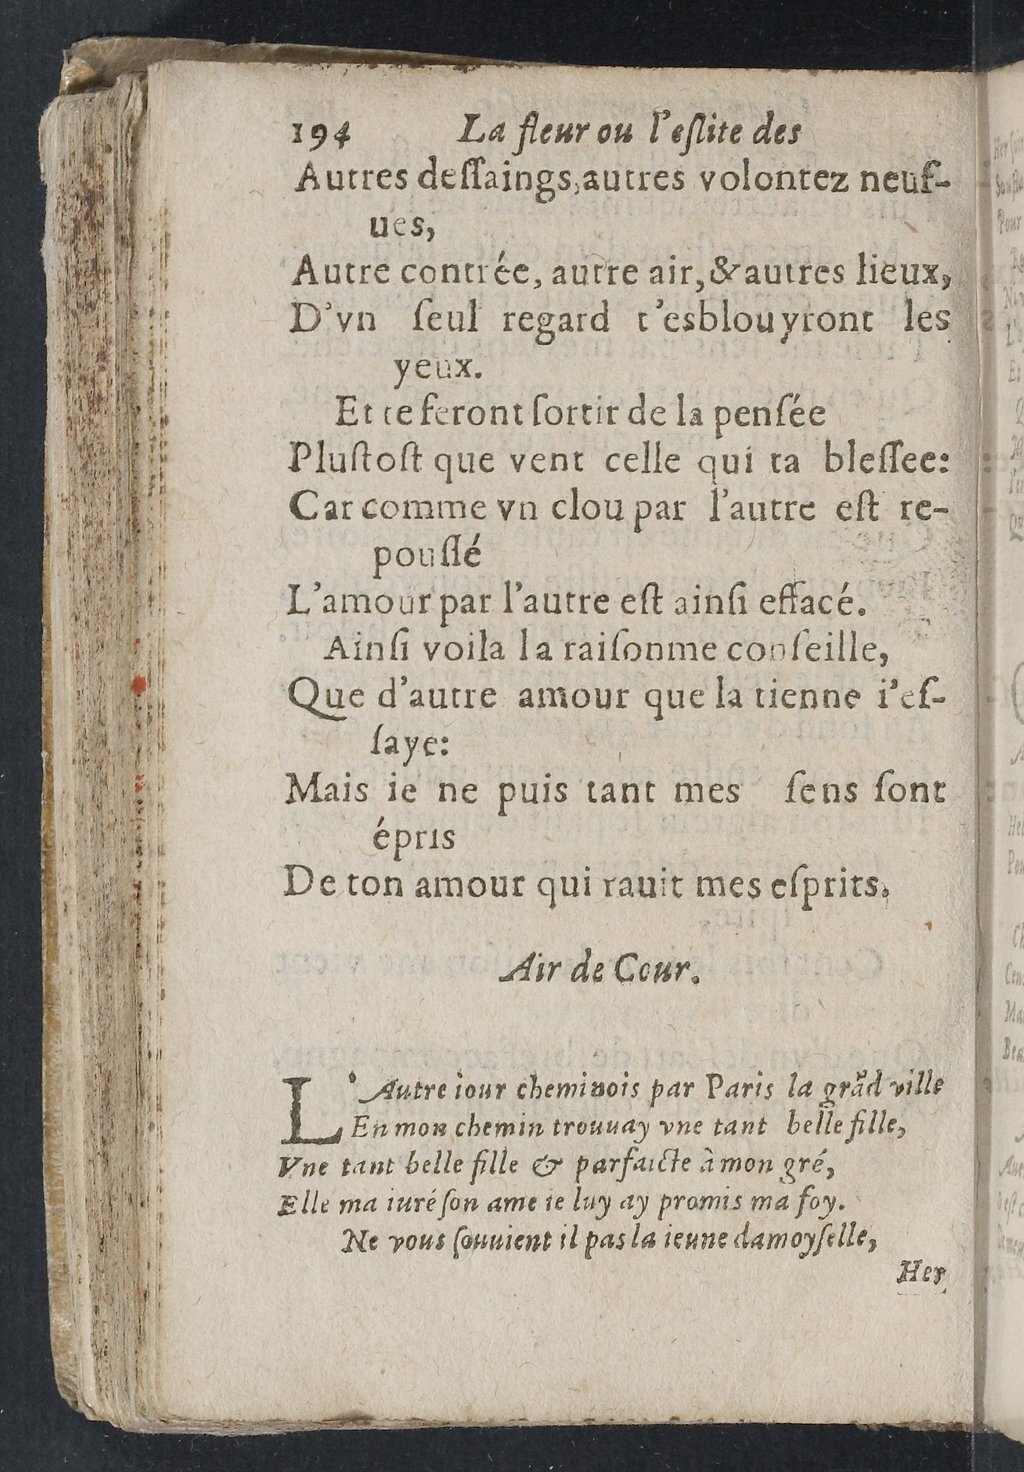 194 La fleur ou l'eſlite des
Autres deſſaings, autres volontez neuf-
ues,
Autre contrée, autre air, & autres lieux,
D'vn ſeul regard t'esblouyront les
yeux.
Et te feront ſortir de la penſée
Pluſtoſt que vent celle qui ta bleſſee:
Car comme vn clou par l'autre eſt re-
pouſſé
L'amour par l'autre eſt ainſi effacé.
Ainſi voila la raiſonme conſeille,
Que d'autre amour que la tienne i'eſ-
ſaye:
Mais ie ne puis tant mes ſens ſont
épris
De ton amour qui rauit mes eſprits,
Air de Cour.
L'Autre iour cheminois par Paris la grãd ville
En mon chemin trouuay vne tant belle fille,
Vne tant belle fille & parfaicte à mon gré,
Elle ma iuré ſon ame ie luy ay promis ma foy.
Ne vous ſouuient il pas la ieune damoyſelle,
Her